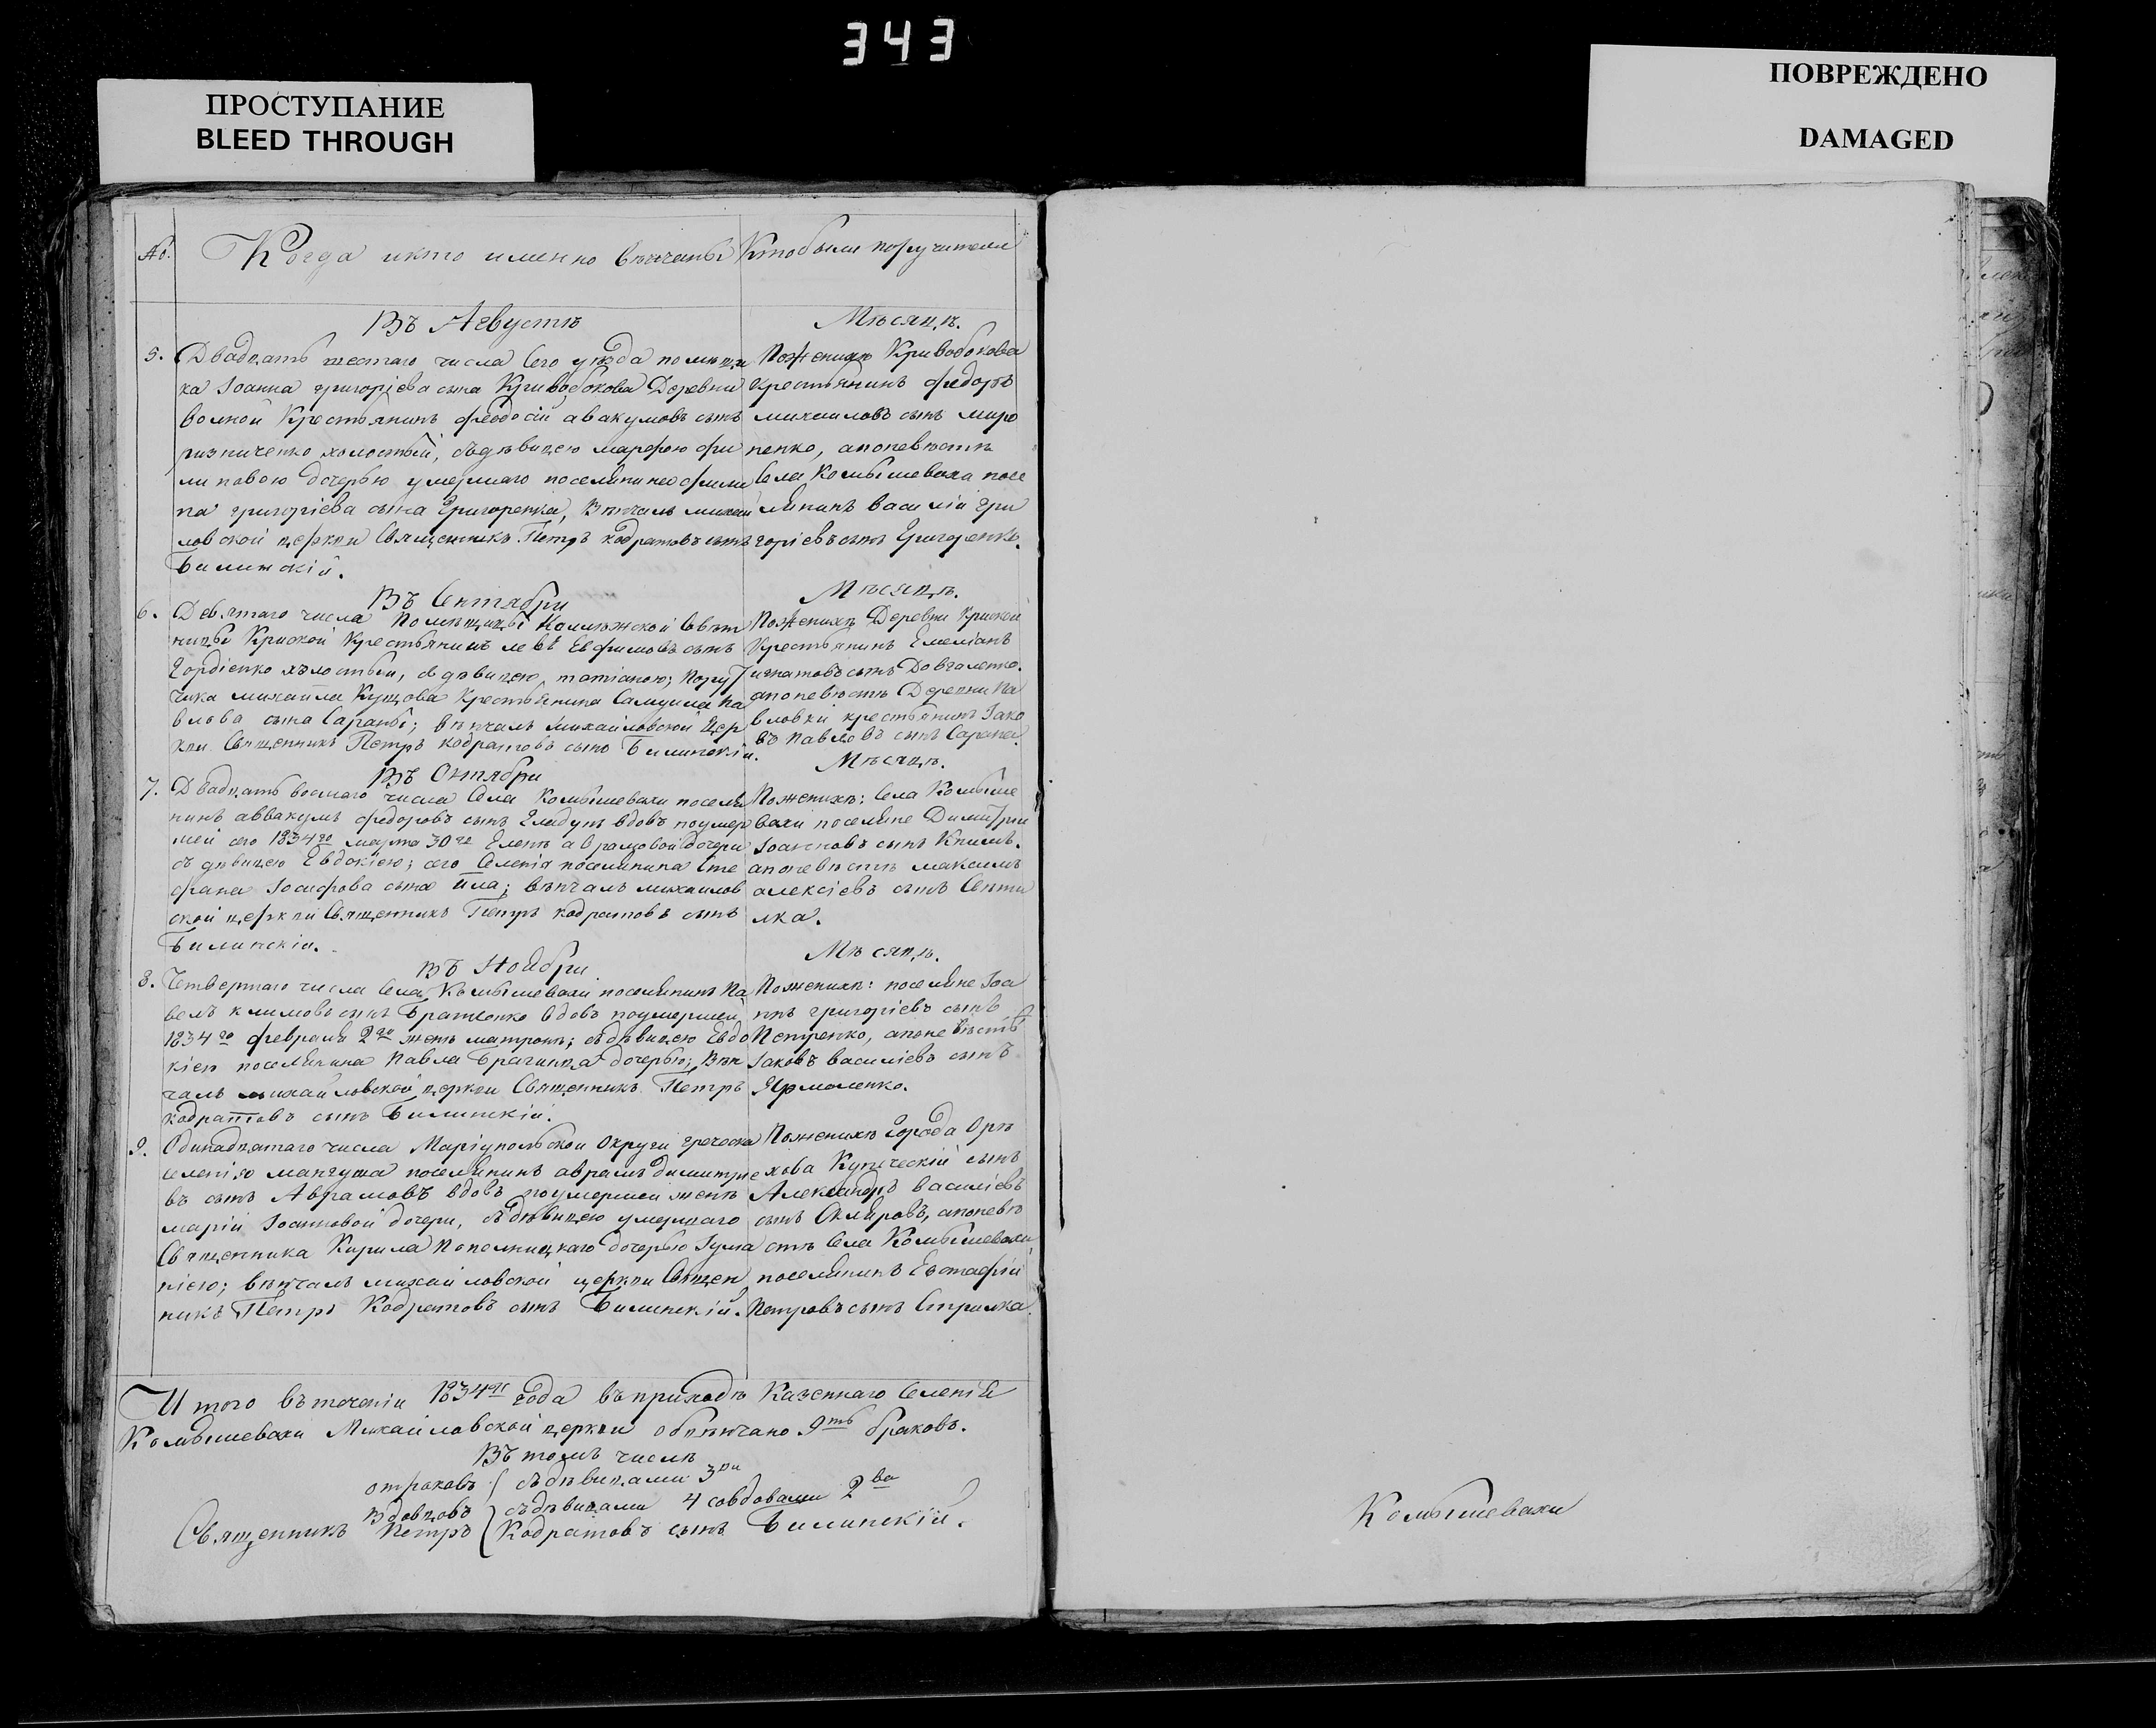 343
ПРОСТУПАНИЕ
BLEED THROUGH
ПОВРЕЖДЕНО
DAMAGED
№. Когда икто именно вѣнчаны
Ктобыли поручители
Въ Августѣ
Мѣсяцѣ.
5. Двадцать шестаго числа Сего уѣзда помѣщи
ка Іоанна григоріева сына Кривобокова Деревни
волной Крестьянинъ феодосій авакумовъ сынъ
ризниченко холостый, съдѣвицею марфою фи
липовою дочерью умершаго поселянина фили
па григоріева сына Григоренка, Вѣнчалъ михаи
ловской церкви Священникъ Петръ кодратовъ сынъ
Билинскій.
Поженихѣ Кривобокова
крестьянинъ федоръ
михаиловъ сынъ миро
ненко, апоневѣстѣ
Села Комышеваха посе
лянинъ василій гри
горіевъ сынъ Григоренко.
Въ Сентябри
Мѣсяцѣ.
6. Девятаго числа Помѣщицы Коллежской Совѣт
ницы Крискои Крестьянинъ левъ Евфимовъ сынъ
Гордіенко холостый, съдѣвицею, татіаною; Пору
чика михаила Купцова Крестьянина Самуила Па
влова сына Сараны; вѣнчалъ Михаиловской Цер
кви Священникъ Петръ кодратовъ сынъ Билинскій.
Поженихѣ Деревни Крискои
Крестьянинъ Емеліанъ
игнатовъ сынъ Довгаленко.
апоневѣстѣ Деревни Па
вловки крестьянинъ Іако
въ Павловъ сынъ Сарана.
Въ Октябри
Мѣсяцѣ.
7. Двадцать восмаго числа Села Комышевахи поселя
нинъ аввакумъ федоровъ сынъ Гладунъ вдовъ поумер
шей сего 1834го марта 30го Еленѣ аврамовой дочери
съ дѣвицею Евдокіею; сего Селенія поселянина Сте
фана Іосифова сына Ила; вѣнчалъ михаилов
ской церкви Священникъ Петръ кодратовъ сынъ
Билинскій.
Поженихѣ: Села Комыше
вахи поселяне Димитри
Іоанновъ сынъ Книшъ.
апоневѣстѣ максимъ
алексіевъ сынъ Сенти
лка.
Въ Ноябри
Мѣсяцѣ.
8. Четвертаго числа Села Комышевахи поселянинъ Па
велъ климовъ сынъ Братченко вдовъ поумершей
1834го февраля 2го женѣ матронѣ; съдѣвицею Евдо
кіею поселянина Павла Брагинца дочерью; Вѣн
чалъ михаиловской церкви Священникъ Петръ
кодратовъ сынъ Билинскій.
Поженихѣ: поселяне Іоа
ннъ григоріевъ сынъ
Петренко, апоневѣстѣ
Іаковъ василіевъ сынъ
Ярмоленко.
9. Одинадцатаго числа Маріупольской Округи греческа
селенію мангуша поселянинъ аврамъ димитріе
въ сынъ Аврамовъ вдовъ поумершей женѣ
маріи Іоанновой дочери, съдѣвицею умершаго
Священника Кирила Попелницкаго дочерью Іулиа
ніею; вѣнчалъ михаиловской церкви Священ
никъ Петръ Кодратовъ сынъ Билинскій.
Поженихѣ Города Орѣ
хова Купческій сынъ
Александръ василіевъ
сынъ Скляровъ, апоневѣ
стѣ Села Комышевахи
поселянинъ Евстафій
Петровъ сынъ Стрилка.
Итого въ теченіи 1834го Года въприходѣ Казеннаго Селенія
Комышевахи Михаиловской церкви обвѣнчано 9ть браковъ.
Въ томъ числѣ
отроковъ съдѣвицами 3ри
вдовцовъ съдѣвицами 4 совдовами 2ва
Священникъ Петръ Кодратовъ сынъ Билинскій.
Комышевахи